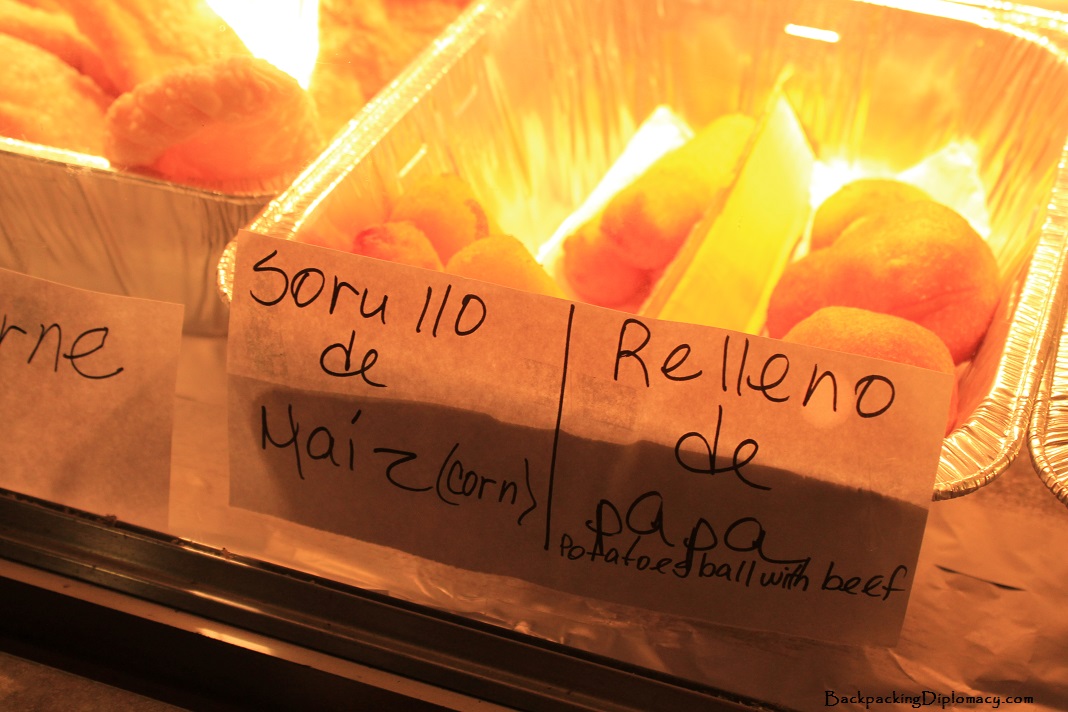 rne
Sorullo
de
Maíz (corn)
Relleno
de
papa
Potatoes ball with beef
BackpackingDiplomacy.com